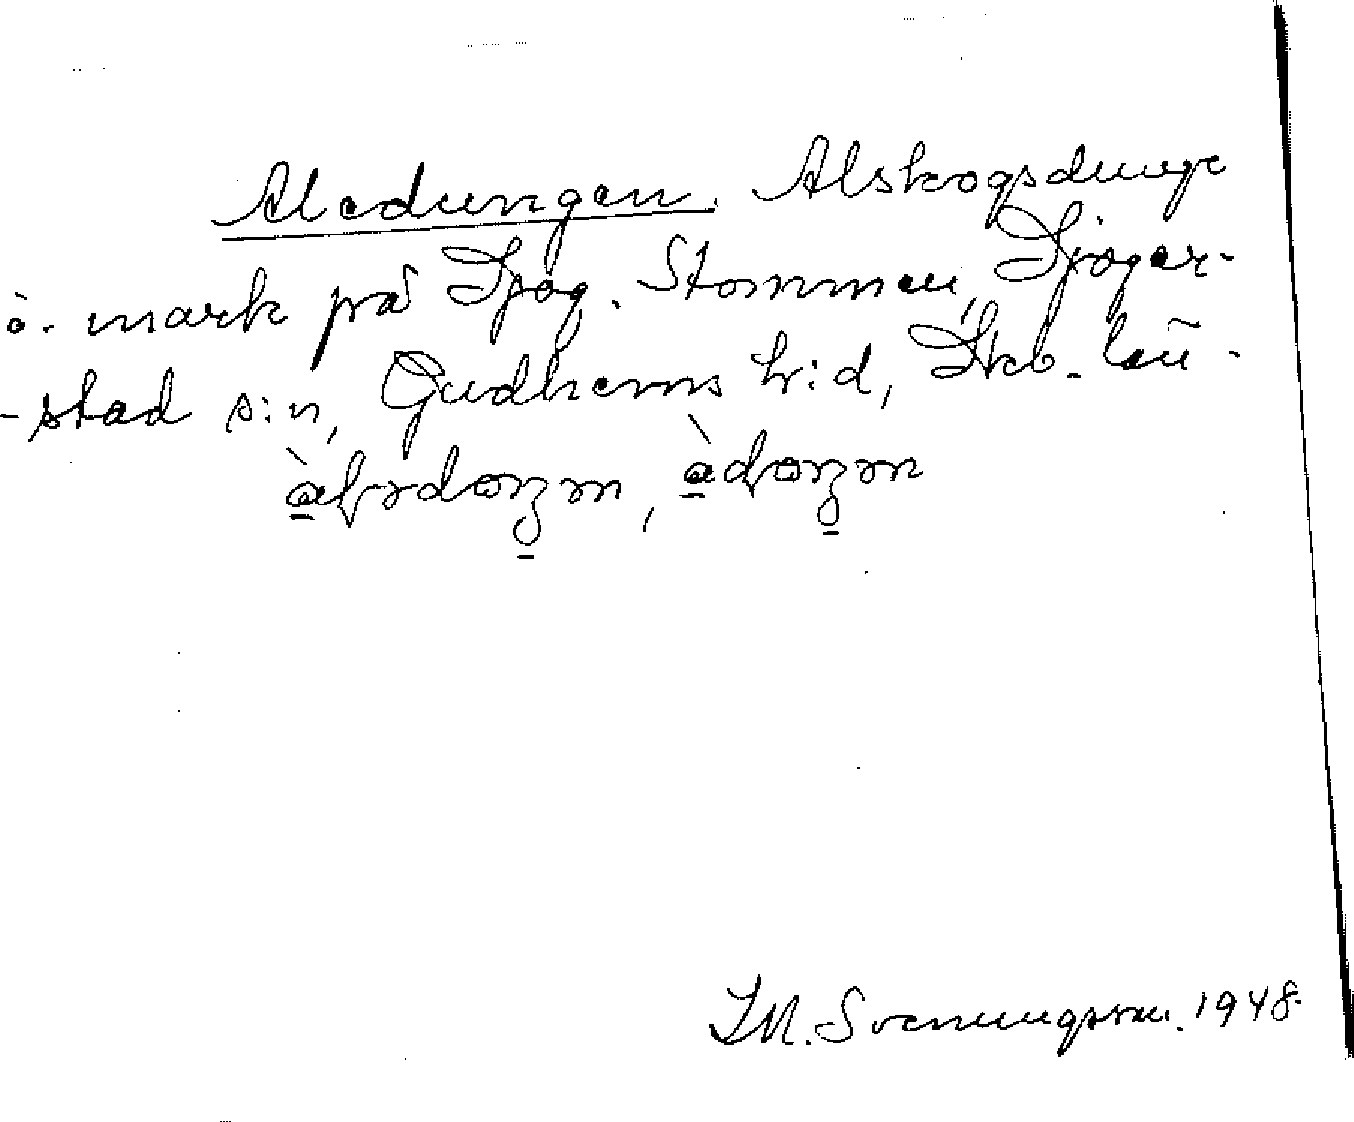 Aledungen. Alskogsdunge
ö. mark på Sjög. Stommen, Sjöger-
-stad s:n, Gudhems h:d, Skb. län.
J M. Svenungsson. 1948.